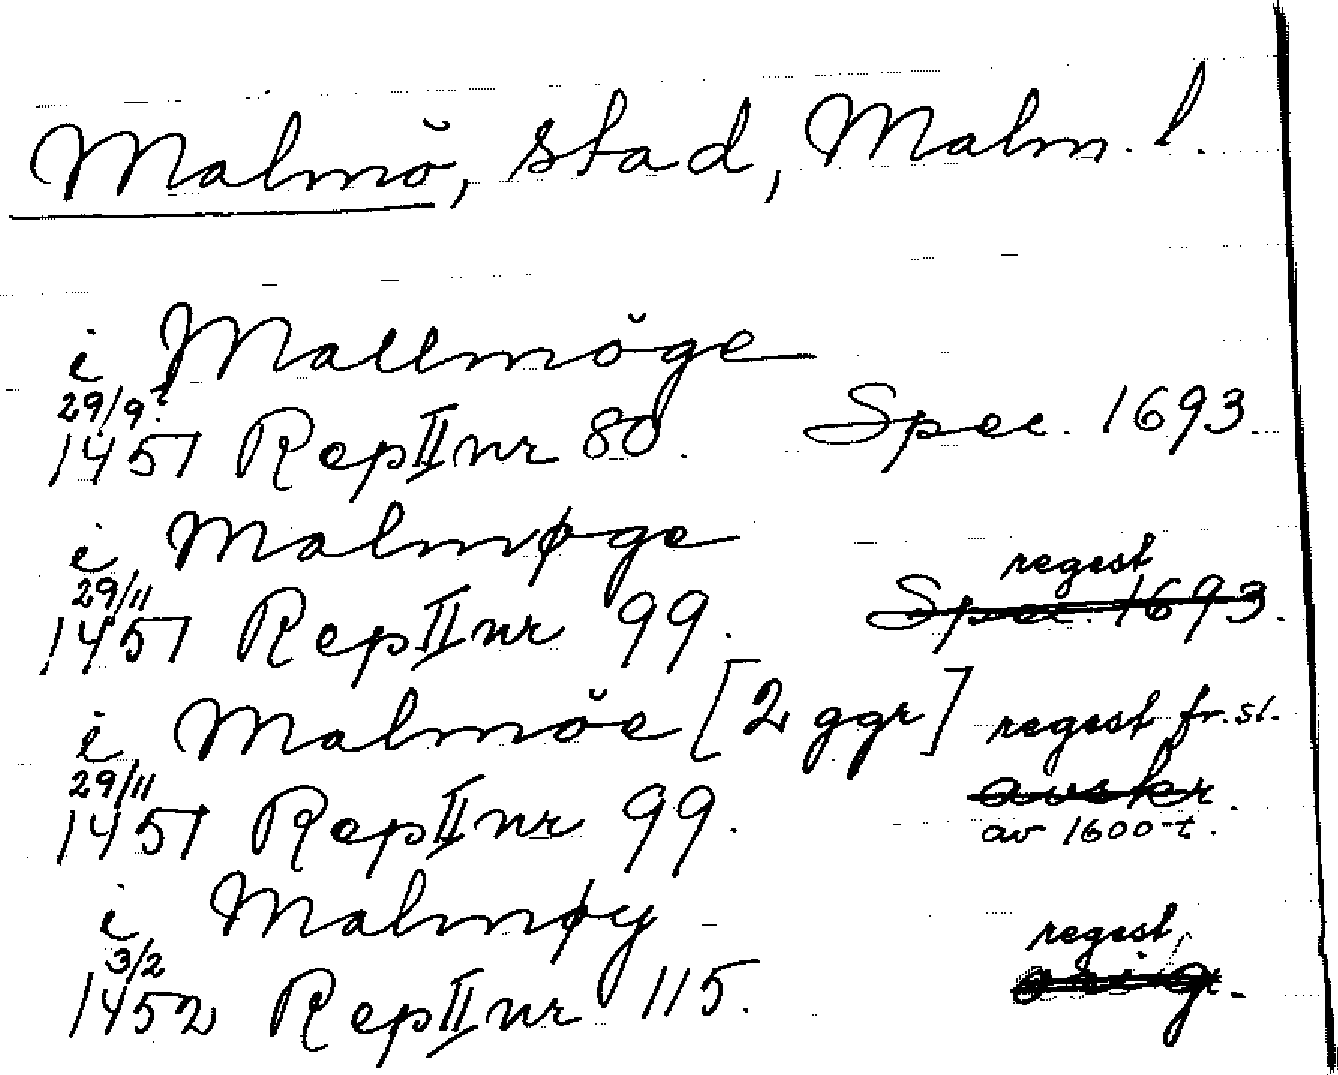 Malmö, stad, Malm. l.
i Mallmöge
29/9?
1451 Rep II nr 80. Spec. 1693.
i Malmøge regest
29/11
1451 Rep II nr 99. Spec. 1693.
i Malmöe [2 ggr] regest fr. sl.
29/11
1451 Rep II nr 99. avskr.
av 1600-t.
i Malmøy regest
3/2
1452 Rep II nr 115. orig.